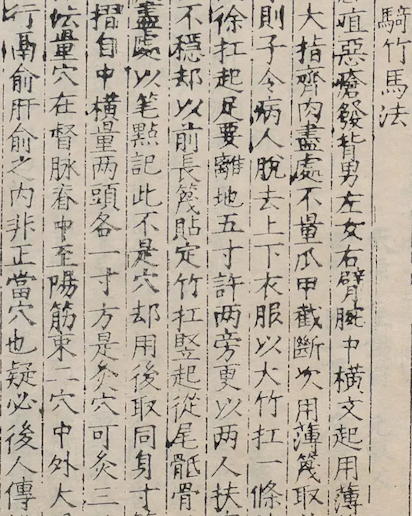 騎竹馬法
疽惡瘡發背男左女右臂腕中橫文起用薄
大指齊肉盡處不量爪甲截斷次用薄篾取
則子令病人脫去上下衣服以大竹扛一條
徐扛起足要離地五寸許两旁更以两人扶
不穩却以前長篾貼定竹扛竪起從尾骶骨
盡處以筆點記此不是穴却用後取同身寸
摺自中橫量两頭各一寸方是灸穴可灸三
量穴在督脉脊中至陽筋束二穴中外大
行鬲俞肝俞之內非正當穴也疑必後人傳